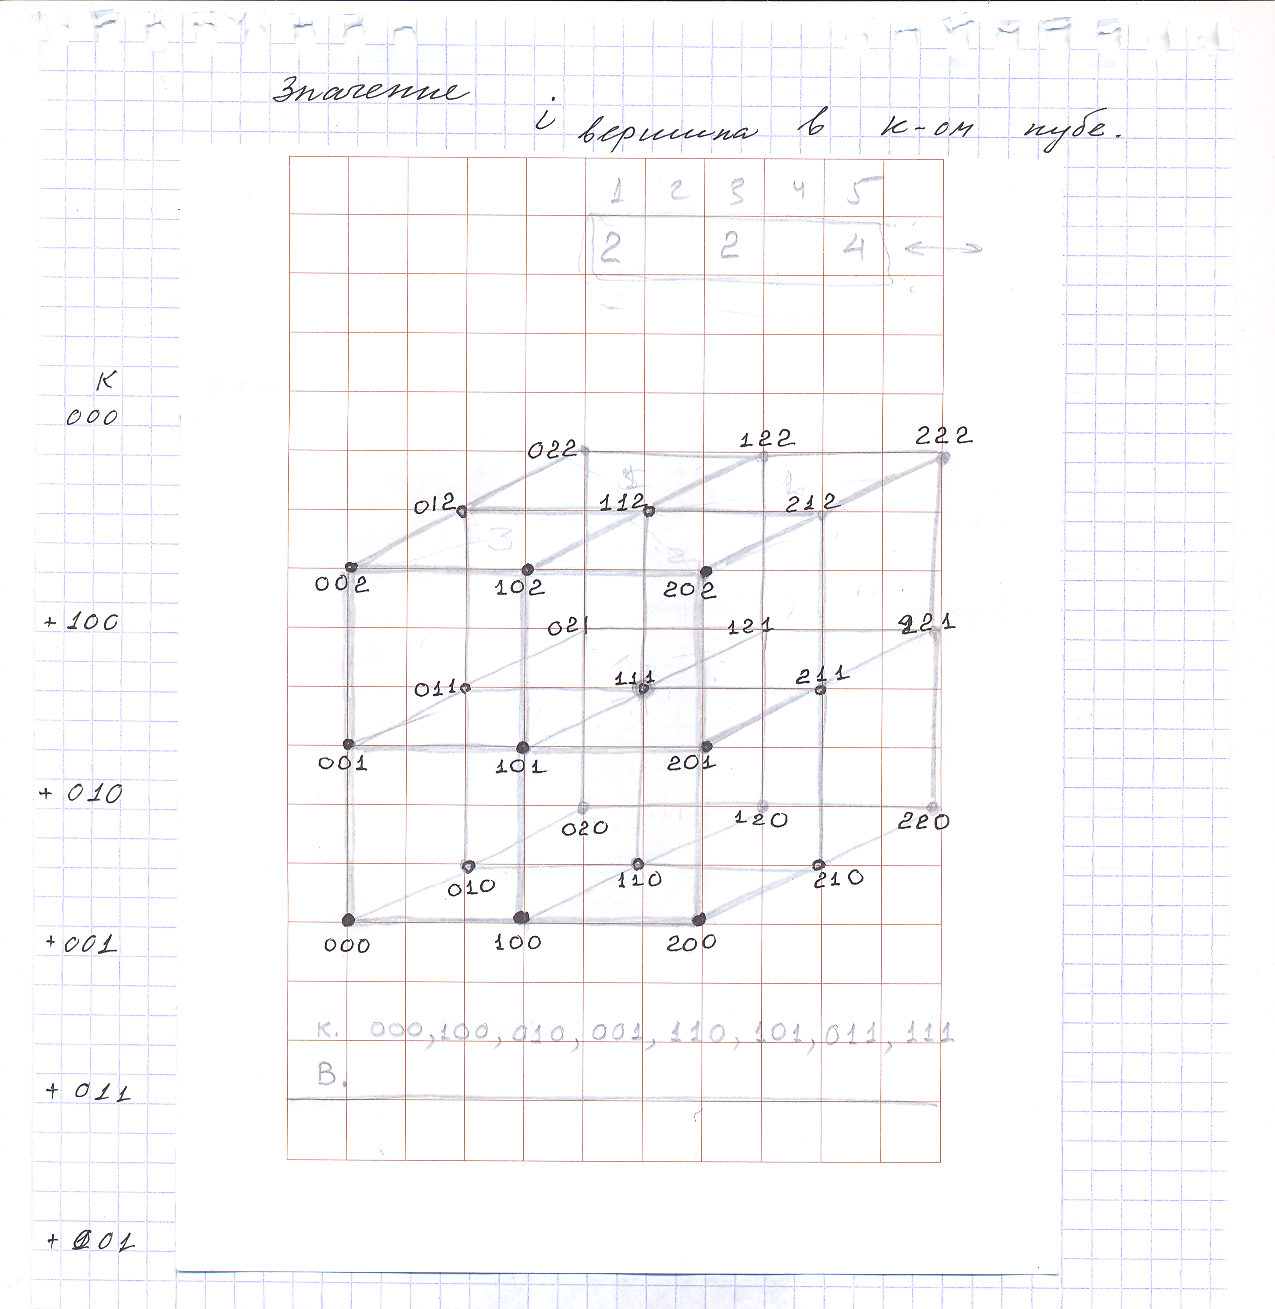 Значение
i вершина в к-ом кубе.
1 2 3 4 5
2 2 4
К
000
022 122 222
012 112 212
002 102 202
+ 100
021 121 221
011 111 211
001 101 201
+ 010
020 120 220
010 110 210
+ 001
000 100 200
к. 000, 100, 010, 001, 110, 101, 011, 111
В.
+ 011
+ 101